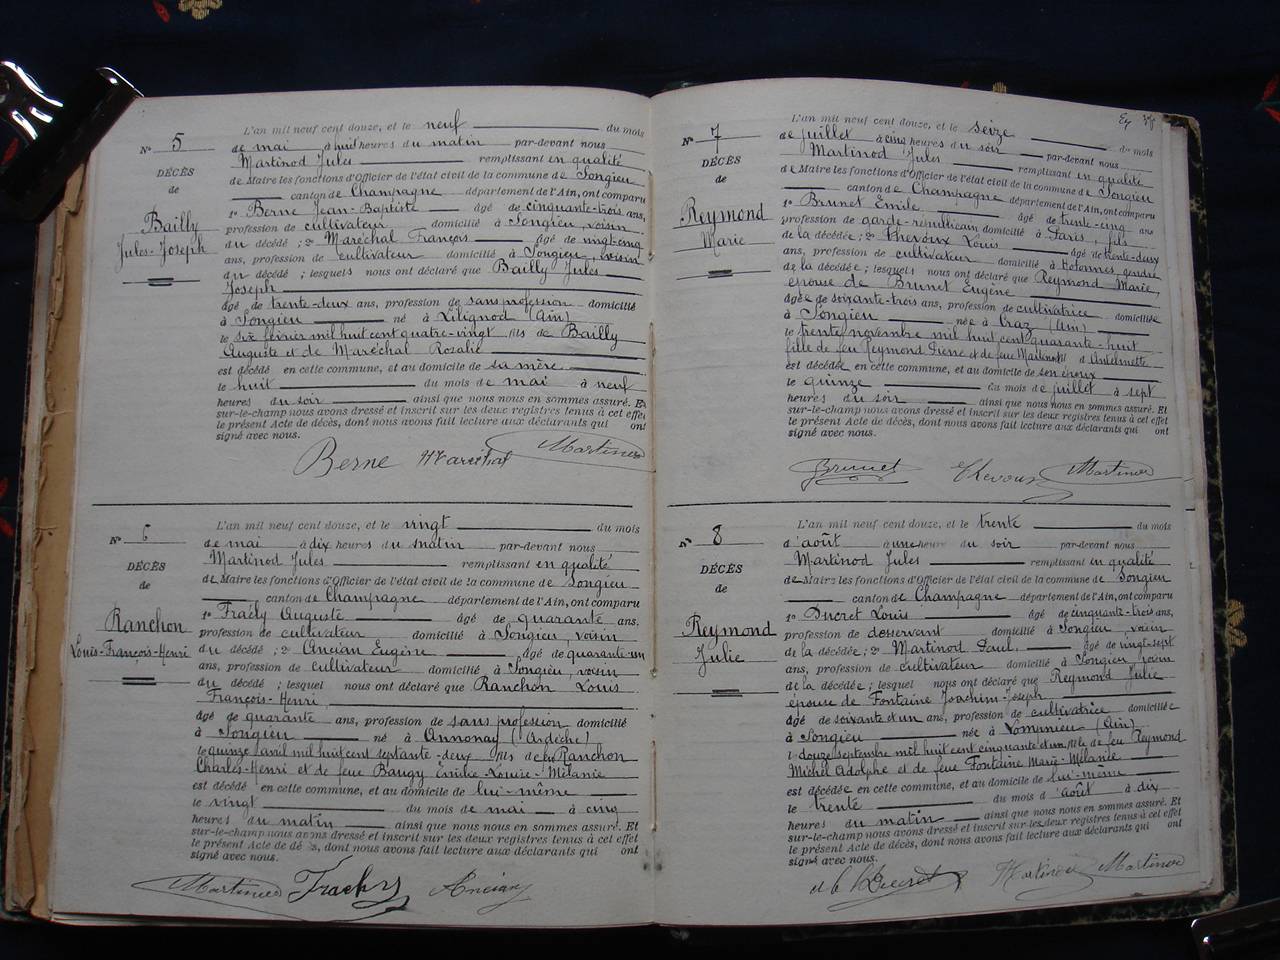 N° 5
DÉCÈS
de
Bailly
Jules-Joseph
L'an mil neuf cent douze, et le neuf du mois
de mai à huit heures du matin par-devant nous
Martinod Jules remplissant en qualité
de Maire les fonctions d'Officier de l'état civil de la commune de Songieu
canton de Champagne département de l'Ain, ont comparu
1° Berne Jean-Baptiste âgé de cinquante-trois ans,
profession de cultivateur domicilié à Songieu, voisin
du décédé ; 2° Maréchal François âgé de vingt-cinq
ans, profession de cultivateur domicilié à Songieu, voisin
du décédé ; lesquels nous ont déclaré que Bailly Jules
Joseph
âgé de trente-deux ans, profession de sans profession domicilié
à Songieu né à Lilignod (Ain)
le six février mil huit cent quatre-vingt fils de Bailly
Auguste et de Maréchal Rozalie
est décédé en cette commune, et au domicile de sa mère
le huit du mois de mai à neuf
heures du soir ainsi que nous nous en sommes assuré. Et
sur-le-champ nous avons dressé et inscrit sur les deux registres tenus à cet effet
le présent Acte de décès, dont nous avons fait lecture aux déclarants qui ont
signé avec nous.
Berne Maréchal Martinod
N° 6
DÉCÈS
de
Ranchon
Louis-François-Henri
L'an mil neuf cent douze, et le vingt du mois
de mai à dix heures du matin par-devant nous
Martinod Jules remplissant en qualité
de Maire les fonctions d'Officier de l'état civil de la commune de Songieu
canton de Champagne département de l'Ain, ont comparu
1° Auguste âgé de quarante ans,
profession de cultivateur domicilié à Songieu, voisin
du décédé ; 2° Ancian Eugène âgé de quarante-un
ans, profession de cultivateur domicilié à Songieu, voisin
du décédé ; lesquel nous ont déclaré que Ranchon Louis
François-Henri,
âgé de quarante ans, profession de sans profession domicilié
à Songieu né à Annonay (Ardèche)
le quinze avril mil huit cent septante-deux fils de feu Ranchon
Charles-Henri et de feue Baugy Émilie-Louise-Mélanie
est décédé en cette commune, et au domicile de lui-même
le vingt du mois de mai à cinq
heures du matin ainsi que nous nous en sommes assuré. Et
sur-le-champ nous avons dressé et inscrit sur les deux registres tenus à cet effet
le présent Acte de décès, dont nous avons fait lecture aux déclarants qui ont
signé avec nous.
Martinod Ancian
N° 7
DÉCÈS
de
Reymond
Marie
L'an mil neuf cent douze, et le seize du mois
de juillet à cinq heures du soir par-devant nous
Martinod Jules remplissant en qualité
de Maire les fonctions d'Officier de l'état civil de la commune de Songieu
canton de Champagne département de l'Ain, ont comparu
1° Brunet Émile âgé de trente-cinq ans
profession de garde-républicain domicilié à Paris, fils
de la décédée ; 2° Thevoux Louis âgé de trente-deux
ans, profession de cultivateur domicilié à Hotonnes, gendre
de la décédée ; lesquels nous ont déclaré que Reymond Marie,
épouse de Brunet Eugène
âgée de soixante-trois ans, profession de cultivatrice domiciliée
à Songieu née à Craz (Ain)
le trente novembre mil huit cent quarante-huit
fille de feu Reymond Pierre et de feue Antelmette
est décédée en cette commune, et au domicile de son époux
le quinze du mois de juillet à sept
heures du soir ainsi que nous nous en sommes assuré. Et
sur-le-champ nous avons dressé et inscrit sur les deux registres tenus à cet effet
le présent Acte de décès, dont nous avons fait lecture aux déclarants qui ont
signé avec nous.
Brunet Thevoux Martinod
N° 8
DÉCÈS
de
Reymond
Julie
L'an mil neuf cent douze, et le trente du mois
d'août à une heure du soir par-devant nous
Martinod Jules remplissant en qualité
de Maire les fonctions d'Officier de l'état civil de la commune de Songieu
canton de Champagne département de l'Ain, ont comparu
1° Ducret Louis âgé de cinquante-trois ans,
profession de desservant domicilié à Songieu, voisin
de la décédée ; 2° Martinod Paul, âgé de vingt-sept
ans, profession de cultivateur domicilié à Songieu, voisin
de la décédée ; lesquel nous ont déclaré que Reymond Julie
épouse de Fontaine Joachim-Joseph
âgé de soixante et un ans, profession de cultivatrice domiciliée
à Songieu née à Lompnieu (Ain)
le douze septembre mil huit cent cinquante et un fille de feu Reymond
Michel Adolphe et de feue Fontaine Marie-Mélanie
est décédée en cette commune, et au domicile de lui-même
le trente du mois d'août à dix
heures du matin ainsi que nous nous en sommes assuré. Et
sur-le-champ nous avons dressé et inscrit sur les deux registres tenus à cet effet
le présent Acte de décès, dont nous avons fait lecture aux déclarants qui ont
signé avec nous.
Ducret Martinod Martinod